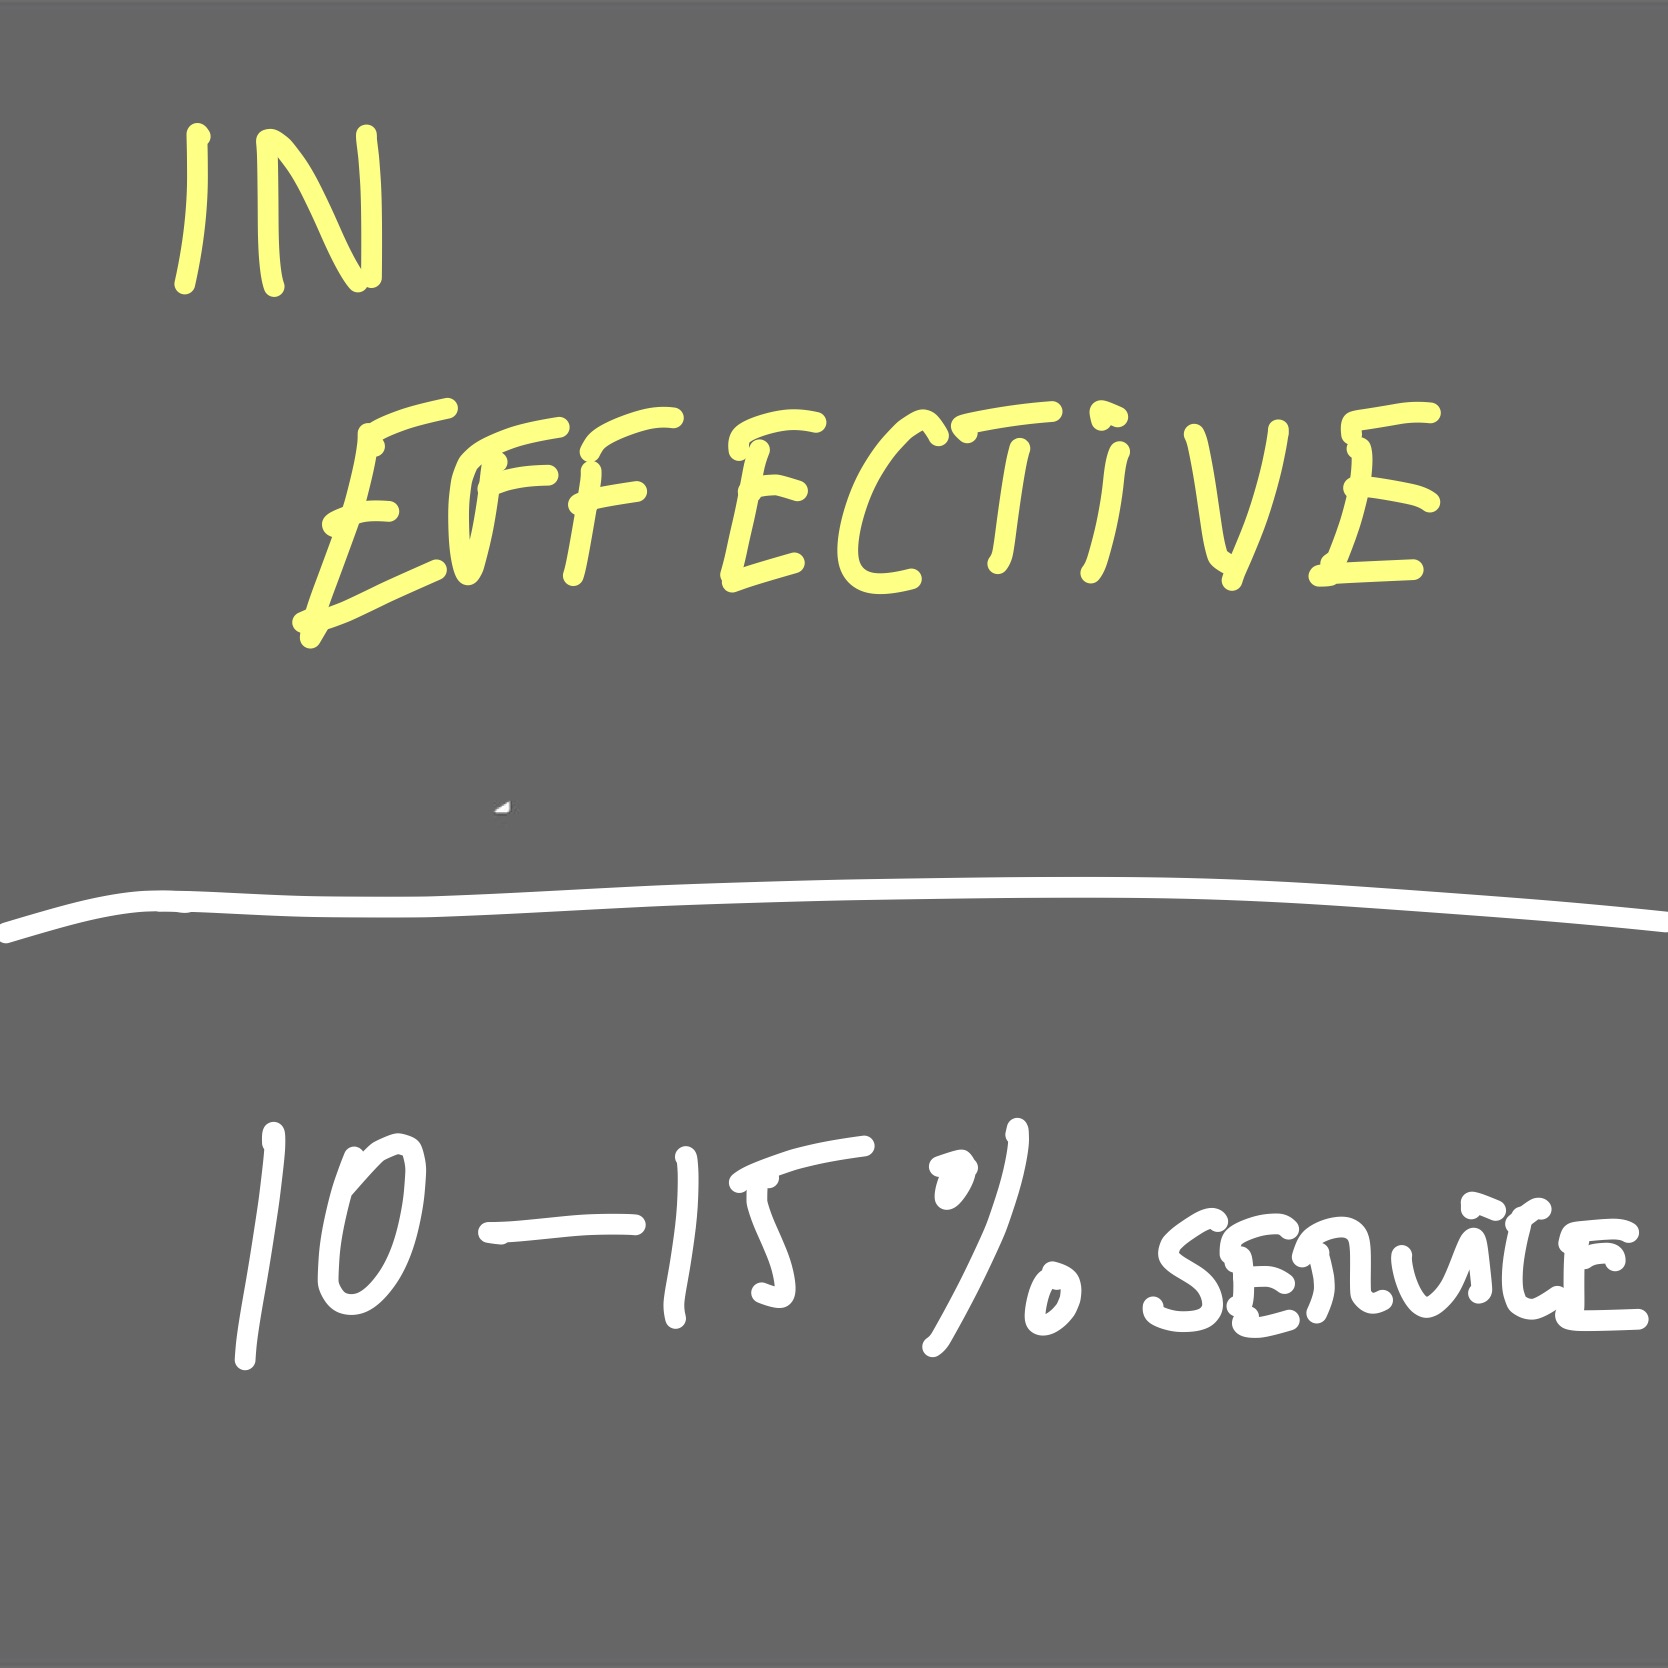 IN
EFFECTiVE
10-15% SERViCE